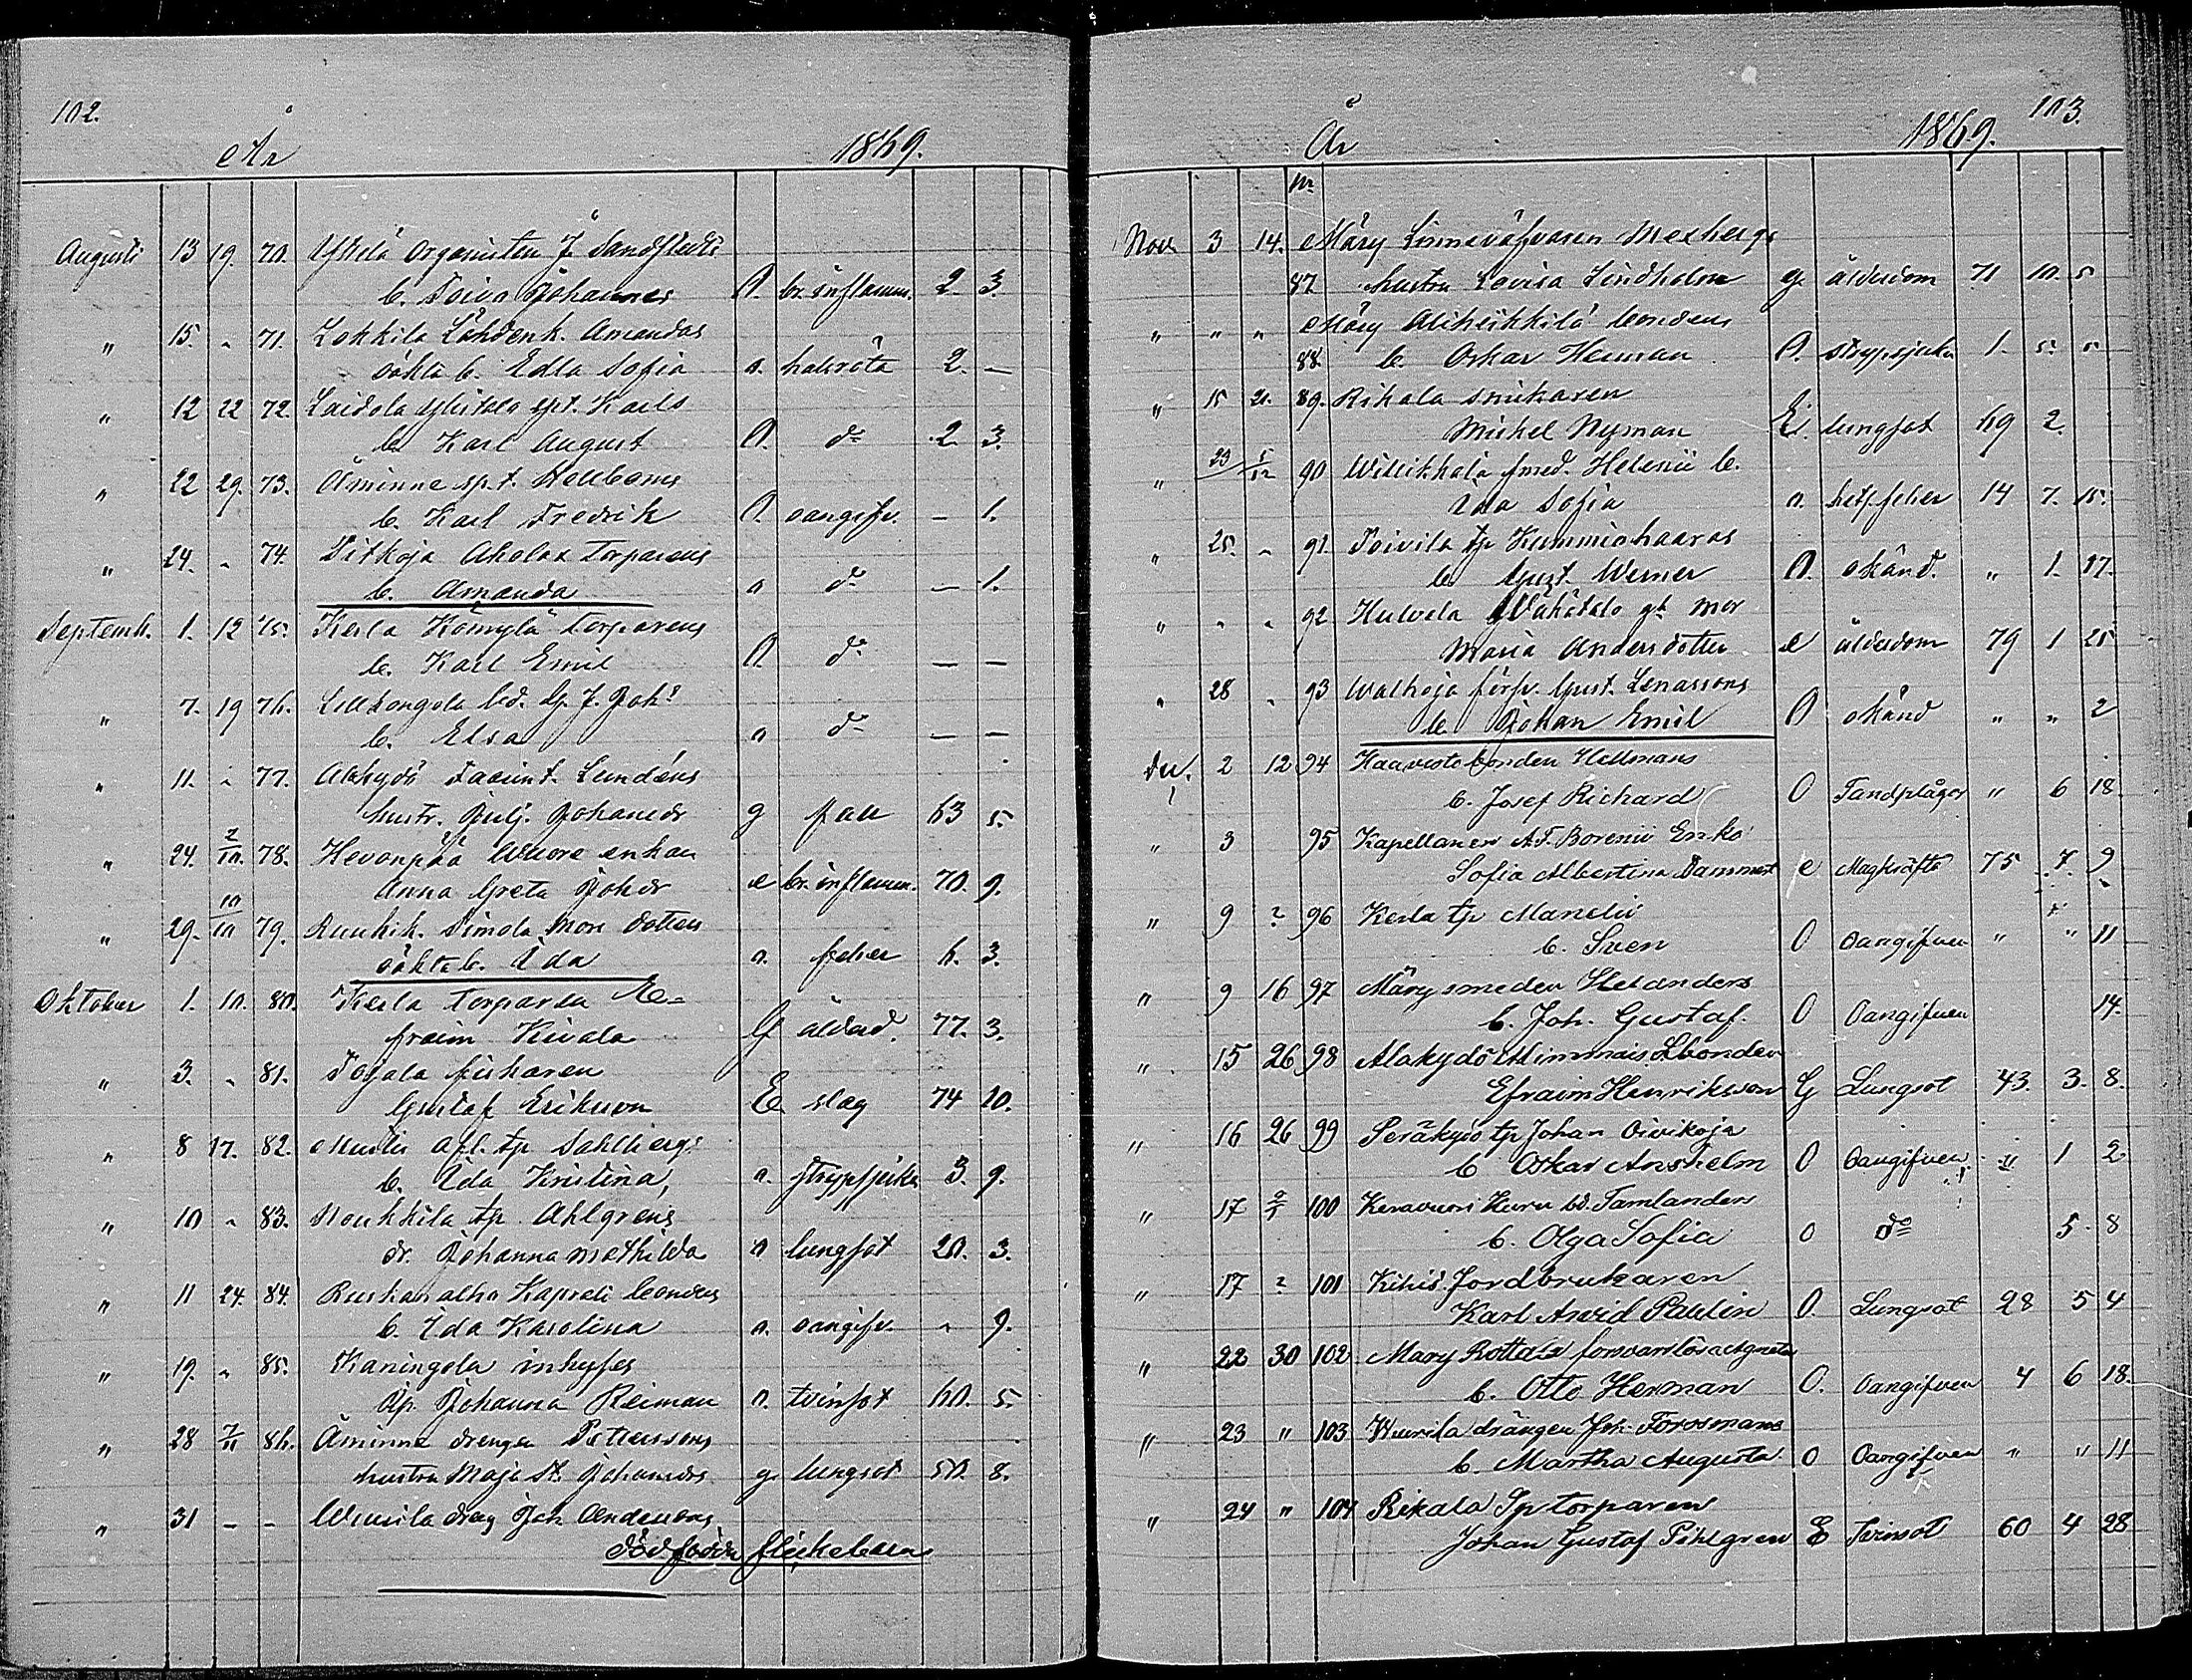 102.
År 1869.
Augusti 13 19. 70. Yskelä Organisten J. Sandstedts
b. Toivo Johannes O. br. inflamm. 2 3.
" 15. " 71. Lokkila Lähdenk. Amandas
oäkta b. Edla Sofia o. halsröta 2. —
" 12 22 72. Laidola Ylitalo spt. Karls
b. Karl August O. do 2 3.
" 22 29. 73. Åminne spt. Hellboms
b. Karl Fredrik O. oangifv. — 1.
" 24. " 74. Pitkoja Aholas Torparens
b. Amanda o do — 1.
Septemb. 1. 12 75. Kerla Kömylä torparens
b. Karl Emil O. do — —
" 7. 19 76. b. Elsa o do — —
" 11. " 77. Lundéns
hustr. Johansdr g fall 63 5.
" 24. 2/10. 78. Hevonpää enkan
Anna Greta Johdr e br. inflamm. 70. 9.
" 29. 10/10 79. Simola dotter
oäkta b. Ida o. feber 6. 3.
Oktober 1. 10. 80. Kerla torparen E-
fraim Kivala G ålderd. 77. 3.
" 3. " 81. Tojala fiskaren
Gustaf Eriksson E. slag 74 10.
" 8 17. 82. tp. Sahlbergs
b. Ida Kristina, o. strypsjuka 3. 9.
" 10 " 83. Noukkila tp. Ahlgrens
dr. Johanna Mathilda o lungsot 20. 3.
" 11 24. 84. Ruskanalho Kapteli bondens
b. Ida Karolina o. oangifv. " 9.
" 19. " 85. Kaningola inhyses
Johanna Reiman o. tvinsot 60. 5.
" 28 7/11 86. Åminne drengen Petterssons
hustru Maja St. Johansdr g. lungsot 50. 8.
" 31 — — Wuorila dreng Joh Anderssons
dödfödda flickebarn
103.
År 1869.
Nr
Nov. 3 14. Märy Linneväfvaren Mexbergs
87. hustru Lovisa Lindholm g. ålderdom 71 10. 5
" " " Märy Aliheikkilä bondens
88. b. Oskar Herman O. strypsjuka 1. 5. 5
" 15 21. 89. Rikala snickaren
Michel Nyman E. lungsot 69 2.
" 23 5/12 90 Willikkala smed. Helenii b.
Ida Sofia o. hetsfeber 14 7. 15.
" 25. " 91. Toivila tp Kummiohaaras
b. Gust. Werner O. okänd. " 1. 27.
" " " 92 Hulvela Vähätalo gl. mor
Maria Andersdotter e ålderdom 79 1 25
" 28 " 93 Walhoja Gust. Lenassons
b. Johan Emil O okänd " " 2
Dec. 2 12 94 Haavisto bonden Hellmans
b. Josef Richard O Tandplågor " 6 18.
" 3 95 Kapellanen A. F. Borenii Enka
Sofia Albertina Dammert e Magkräfta 75 7. 9
" 9 ? 96 Kerla tp Manelii
b. Sven O Oangifven " " 11
" 9 16 97 Märy smeden Helanders
b. Joh. Gustaf. O Oangifven 14.
" 15 26 98 Alakydö Mimmais Lbonden
Efraim Henriksson G Lungsot 43. 3. 8.
" 16 26 99 Peräkydö tp Johan Oivikoja
b Oskar Anshelm O Oangifven " 1 2
" 17 2/1 100 Keravuori Huru bd. Tamlanders
b. Olga Sofia o do 5 8
" 17 ? 101 Kihis Jordbrukaren
Karl Arvid Paulin O. Lungsot 28 5 4
" 22 30 102 Mary Rottala forsvarslösa Agneta
b. Otto Herman O. Oangifven 4 6 18.
" 23 " 103 Wuorila drängen Joh. Forosmans
b. Martha Augusta O Oangifven " " 11
" 24 " 104 Rikala Sp torparen
Johan Gustaf Pihlgren E Tvinsot 60 4 28